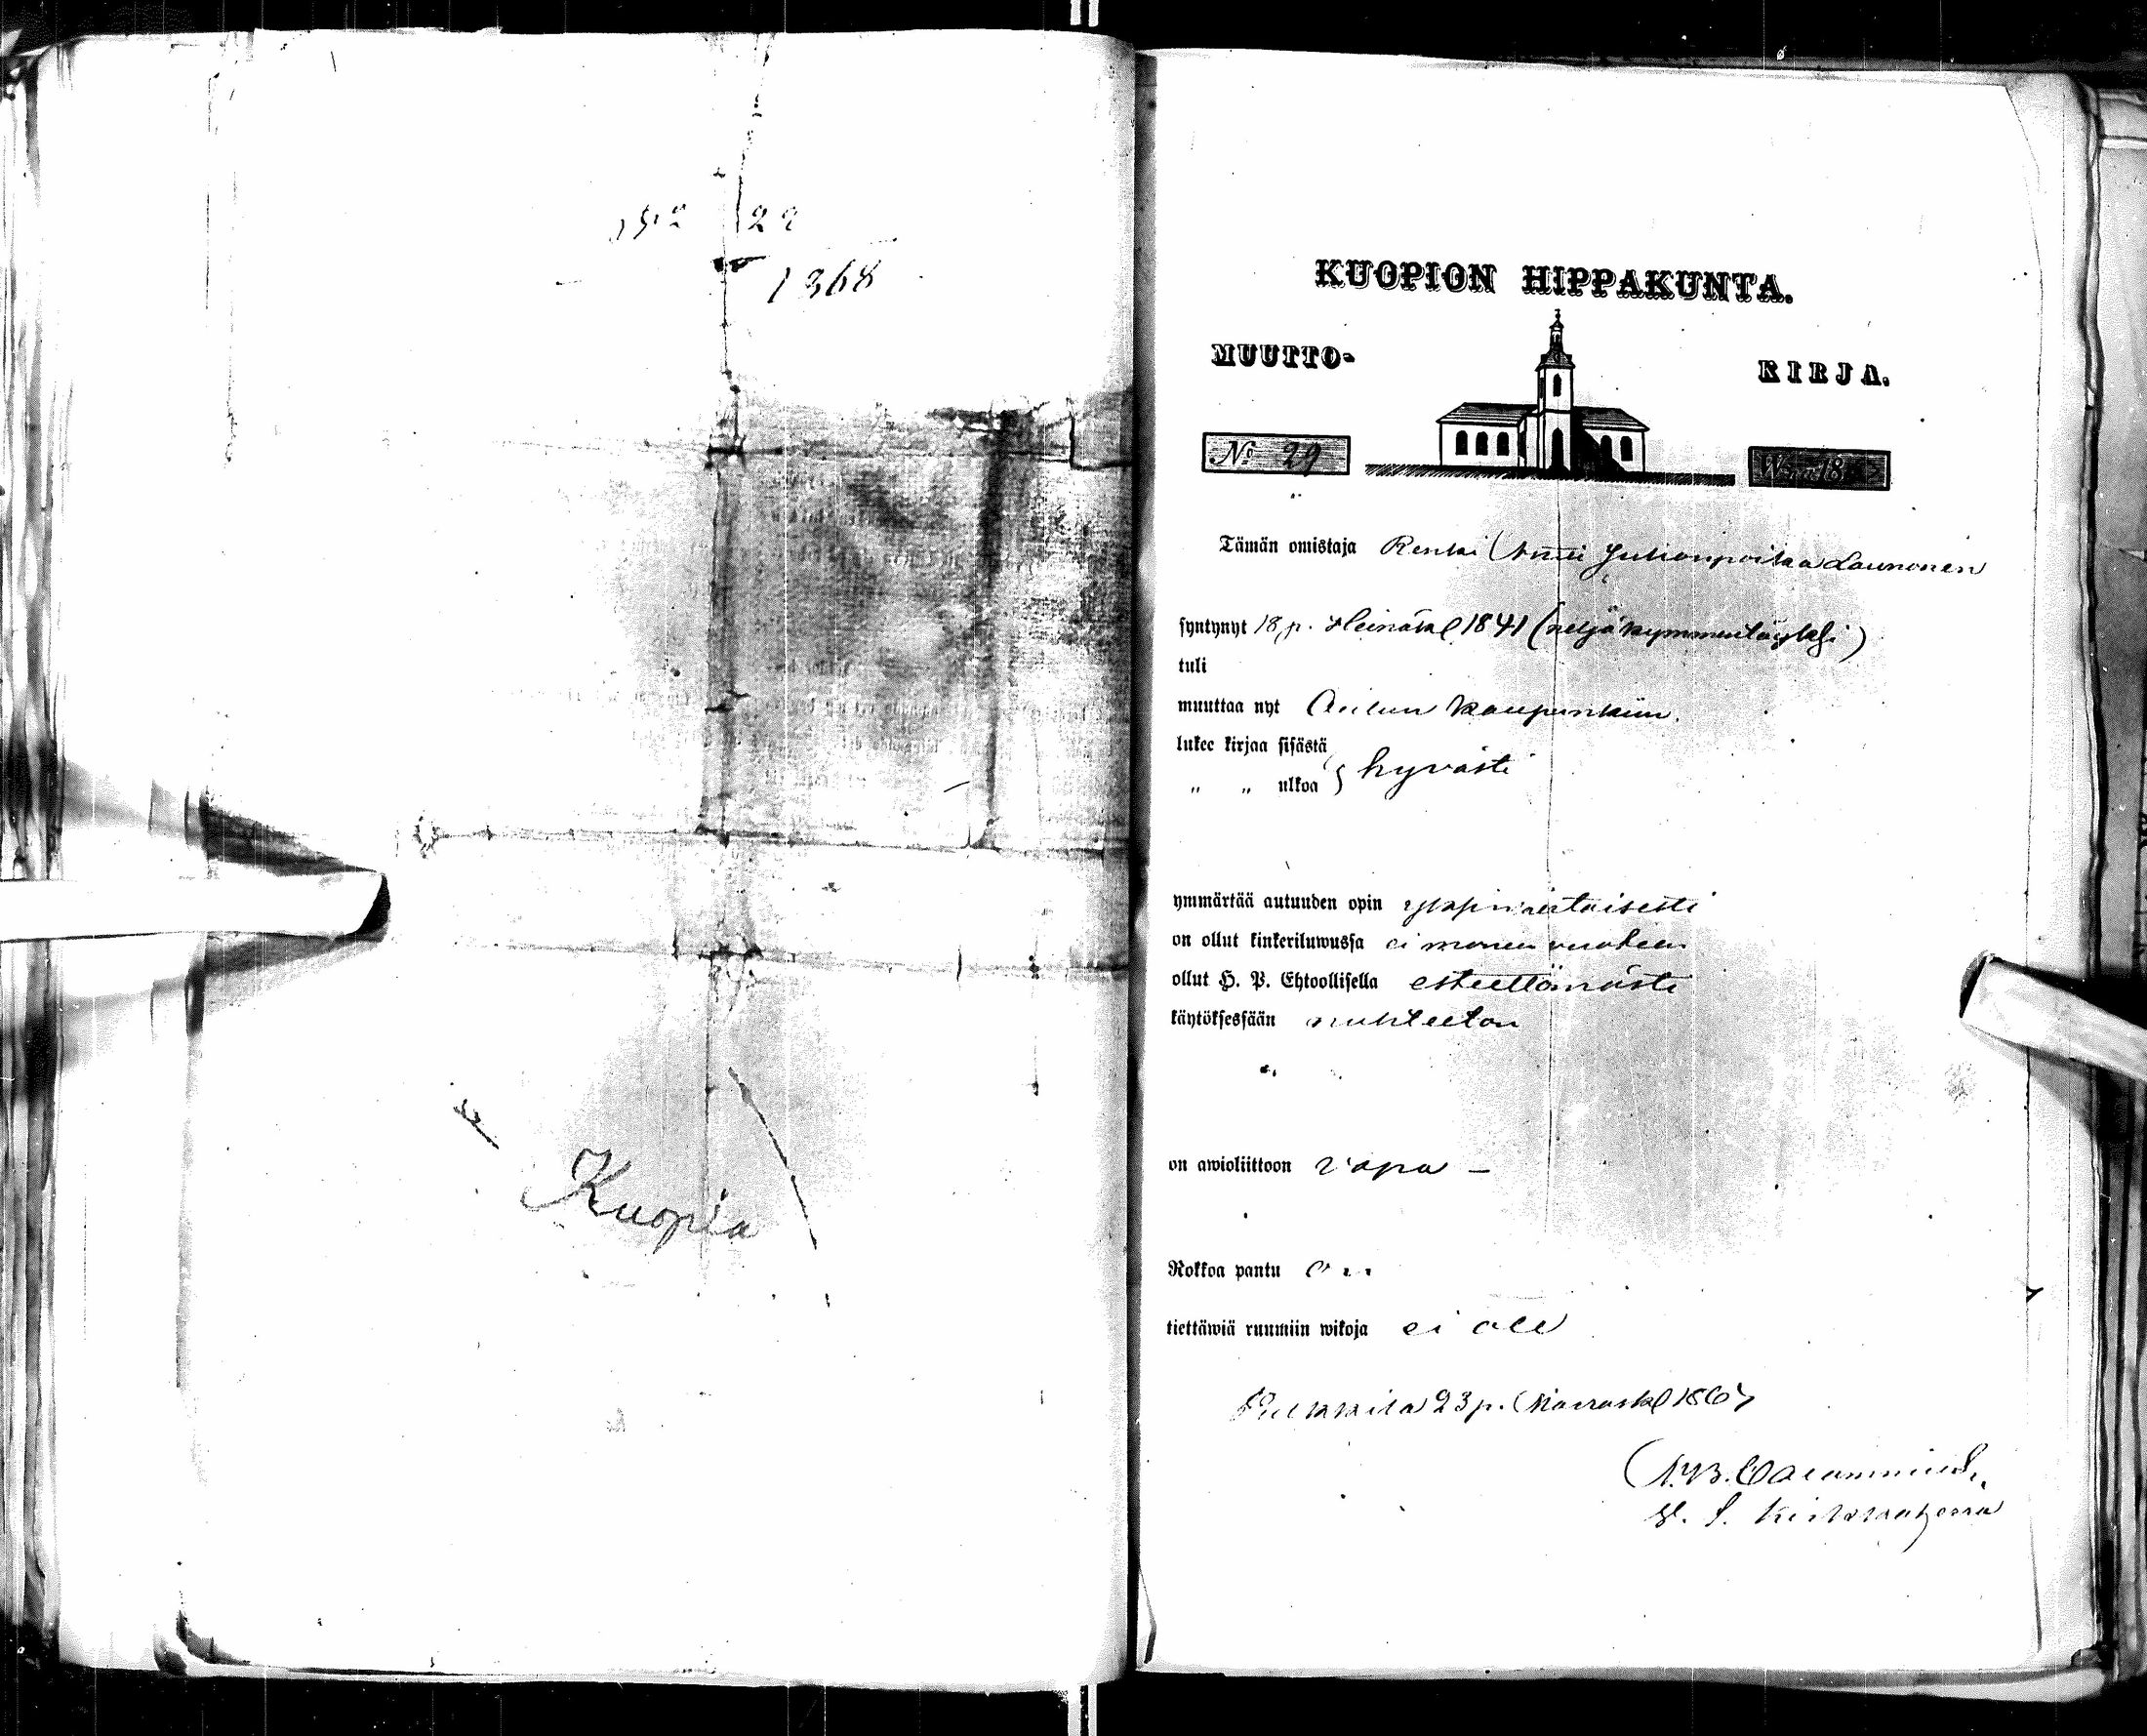 22
1368
Kuopio
KUOPION HIPPAKUNTA.
MUUTTO- KIRJA.
No 29 W:na 18
Tämän omistaja Renki Antti Juhonpoika Launonen
syntynyt 18 p. Heinäk. 1841 (neljäkymmentäyksi)
tuli
muuttaa nyt Oulun kaupunkiin.
lukee kirjaa sisästä
„ „ ulkoa } hyvästi
ymmärtää autuuden opin yksinkertaisesti
on ollut kinkeriluwussa ei monen vuoteen
ollut H. P. Ehtoollisella esteettömästi
käytöksessään nuhteeton
on awioliittoon vapa –
Rokkoa pantu on
tiettäwiä ruumiin wikoja ei ole
Pulkkila 23 p. Marrask. 1867